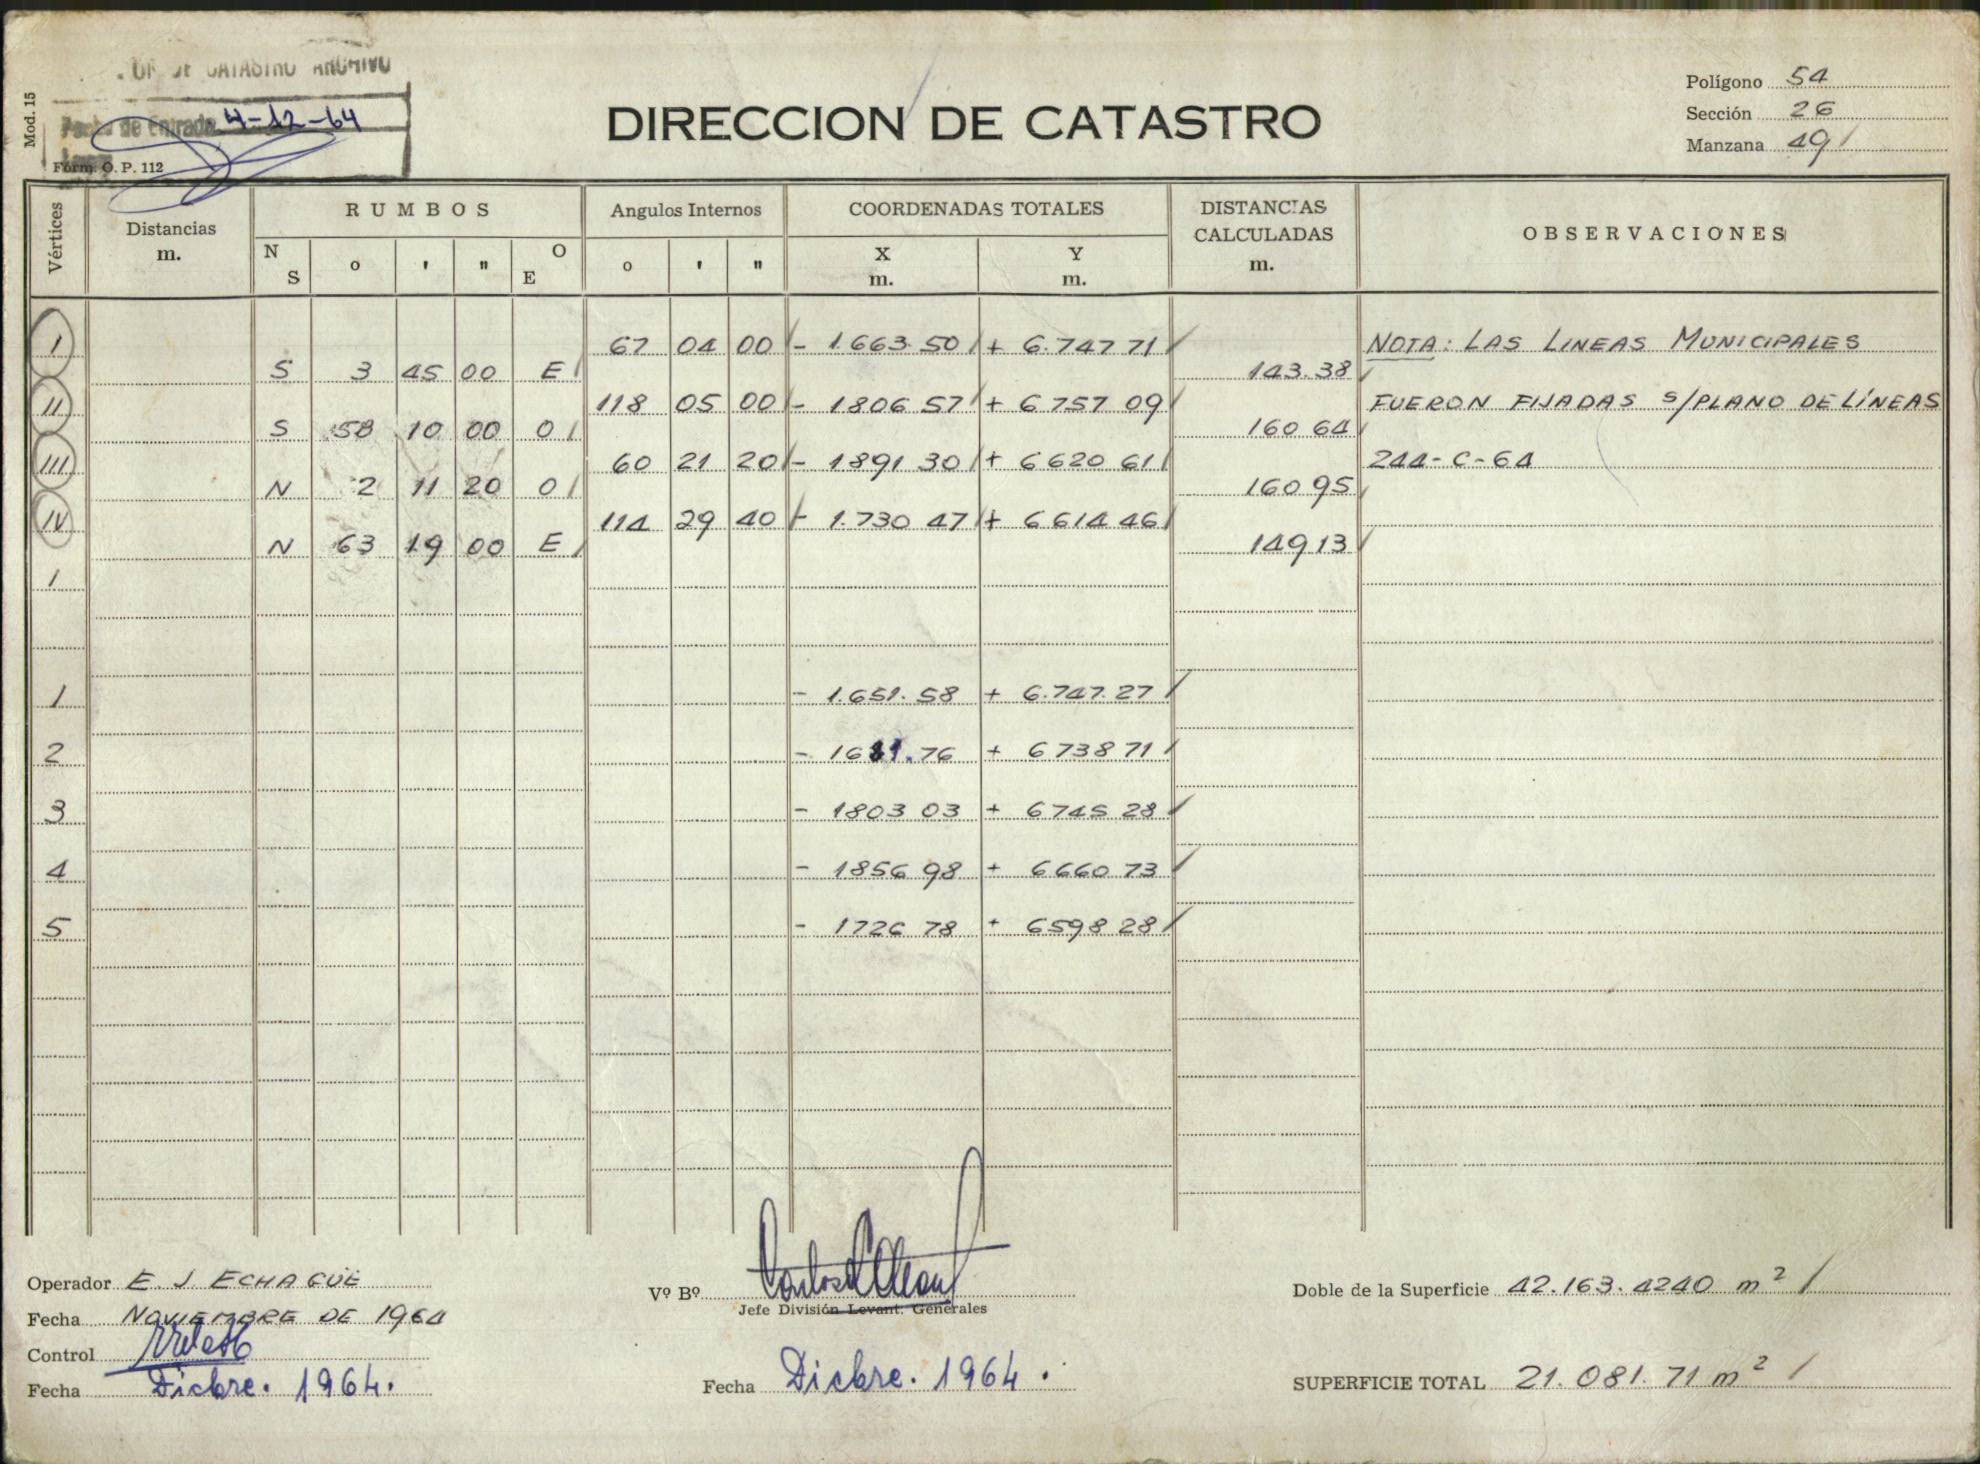 DE CATASTRO ARCHIVO
Mod. 15
Fecha de Entrada 4-12-64
Form. O. P. 112
DIRECCION DE CATASTRO
Polígono 54
Sección 26
Manzana 49
Vértices
Distancias m.
RUMBOS
N S ° ' " O E
Angulos Internos
° ' "
COORDENADAS TOTALES
X m. Y m.
DISTANCIAS CALCULADAS m.
OBSERVACIONES
I 67 04 00 - 1.663.50 + 6.747 71 NOTA: LAS LINEAS MUNICIPALES
S 3 45 00 E 143.38
II 118 05 00 - 1806 57 + 6757 09 FUERON FIJADAS s/PLANO DE LÍNEAS
S 58 10 00 O 160 64
III 60 21 20 - 1891 30 + 6620 61 244-C-64
N 2 11 20 O 160 95
IV 114 29 40 - 1.730 47 + 6614 46
N 63 19 00 E 149 13
I
1 - 1.651.58 + 6.747.27
2 - 1681.76 + 6738 71
3 - 1803 03 + 6745 28
4 - 1856 98 + 6660 73
5 - 1726 78 + 6598 28
Operador E J ECHAGÜE
Fecha NOVIEMBRE DE 1964
Control
Fecha Dicbre. 1964.
Vº Bº
Jefe División Levant. Generales
Fecha Dicbre. 1964.
Doble de la Superficie 42.163.4240 m²
SUPERFICIE TOTAL 21.081.71 m²